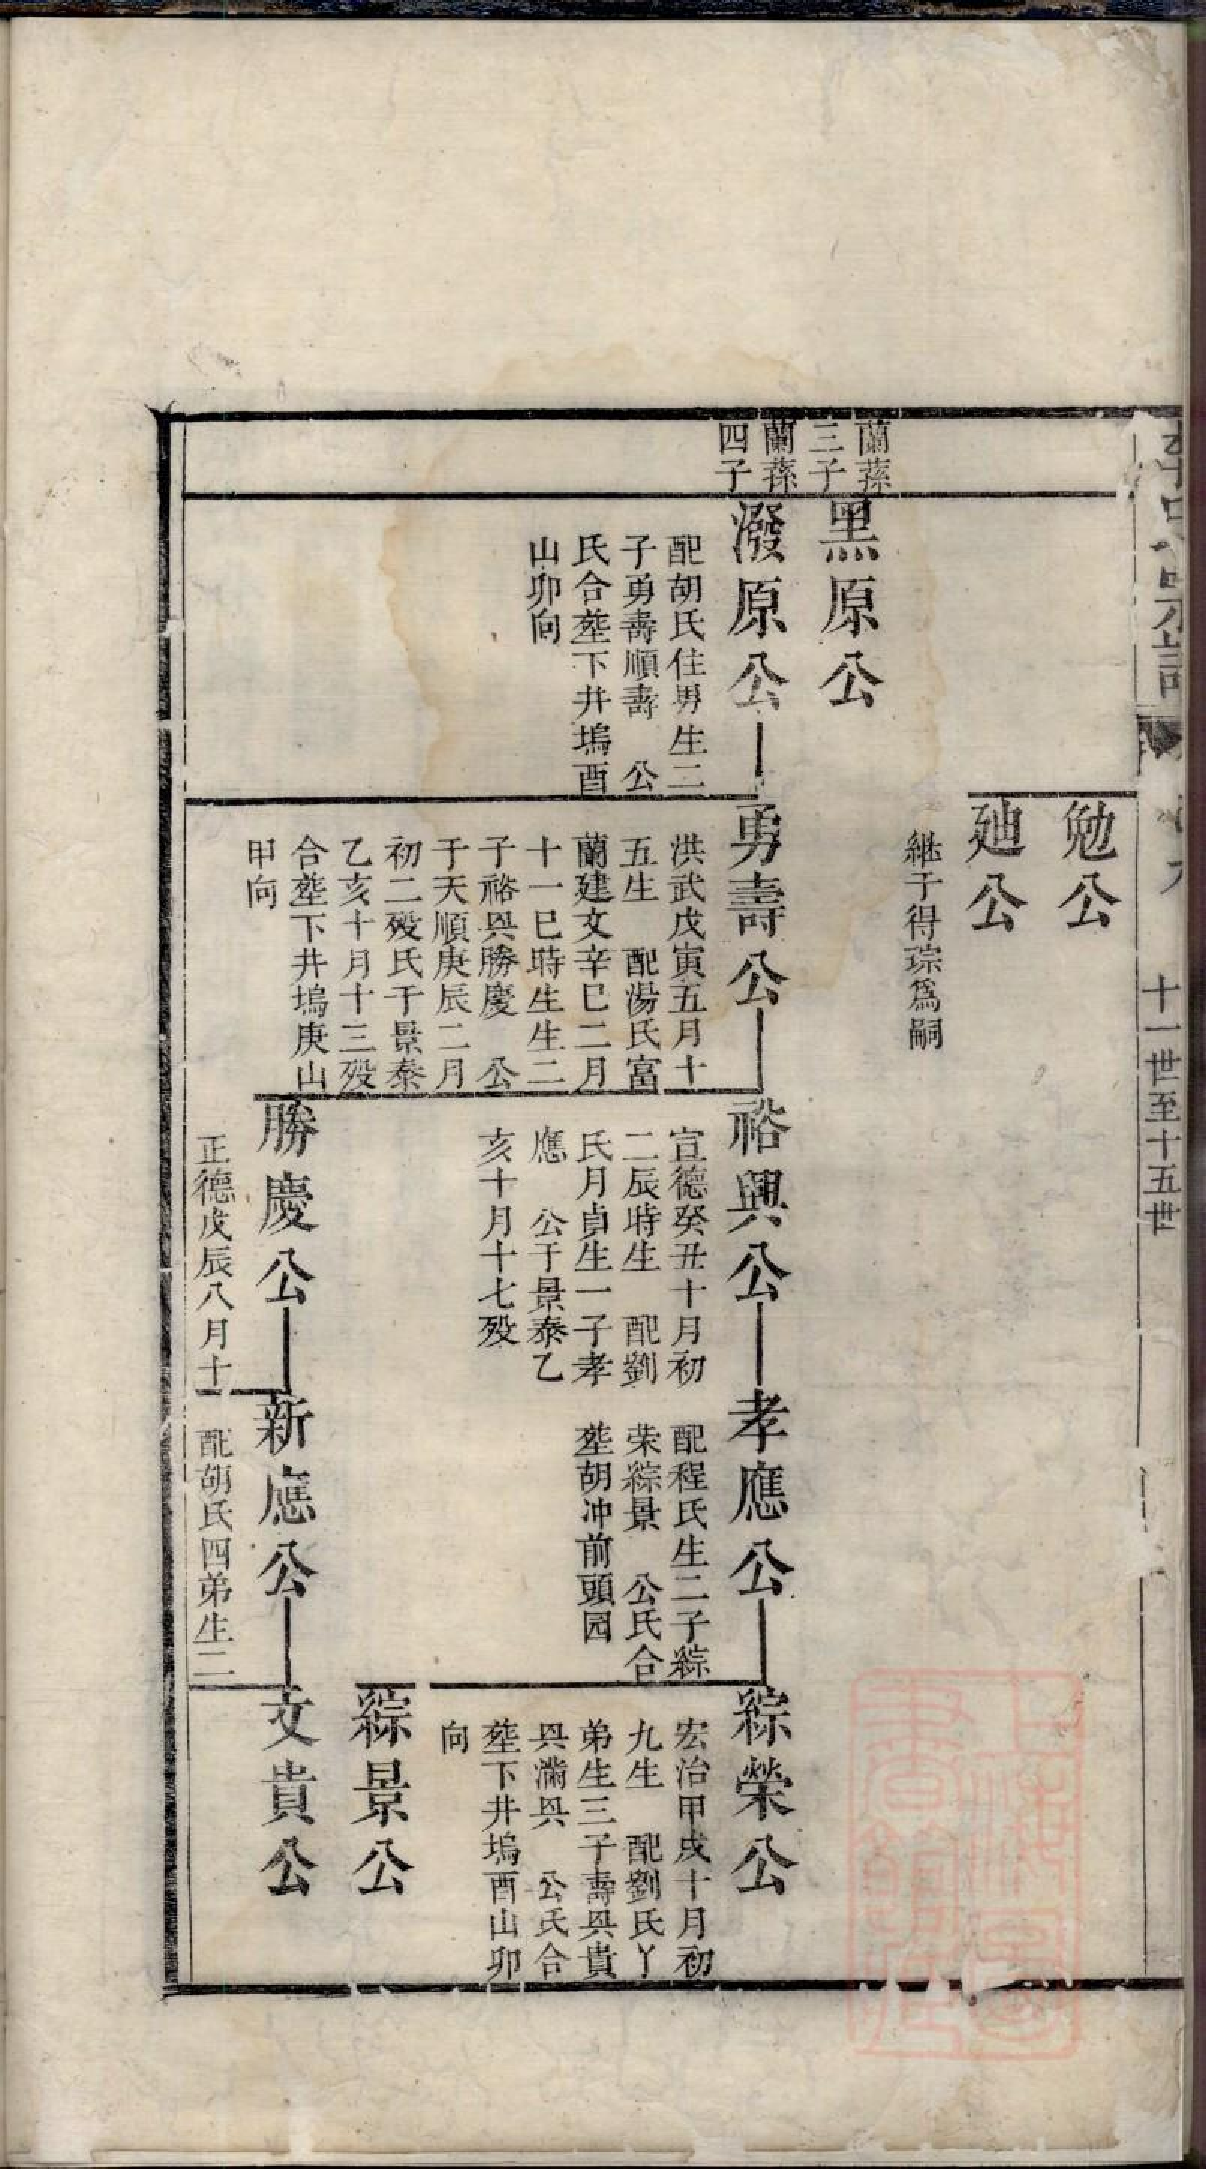 十一世至十五世
勉公
廸公
継子得琮爲嗣
蘭蓀
三子
黑原公
蘭蓀
四子
潑原公
配胡氏住男生二
子勇壽順壽　公
氏合塟下井塢酉
山卯向
勇壽公
洪武戊寅五月十
五生　配湯氏富
蘭建文辛巳二月
十一巳時生生二
子裕興勝慶　公
于天順庚辰二月
初二殁氏于景泰
乙亥十月十三殁
合塟下井塢庚山
甲向
裕興公
宣德癸丑十月初
二辰時生　配劉
氏月貞生一子孝
應　公于景泰乙
亥十月十七殁
孝應公
配程氏生二子綜
荣綜景　公氏合
塟胡冲前頭园
綜榮公
宏治甲戌十月初
九生　配劉氏丫
弟生三子壽興貴
興滿興　公氏合
塟下井塢酉山卯
向
綜景公
勝慶公
正德戊辰八月十
新應公
配胡氏四弟生二
文貴公